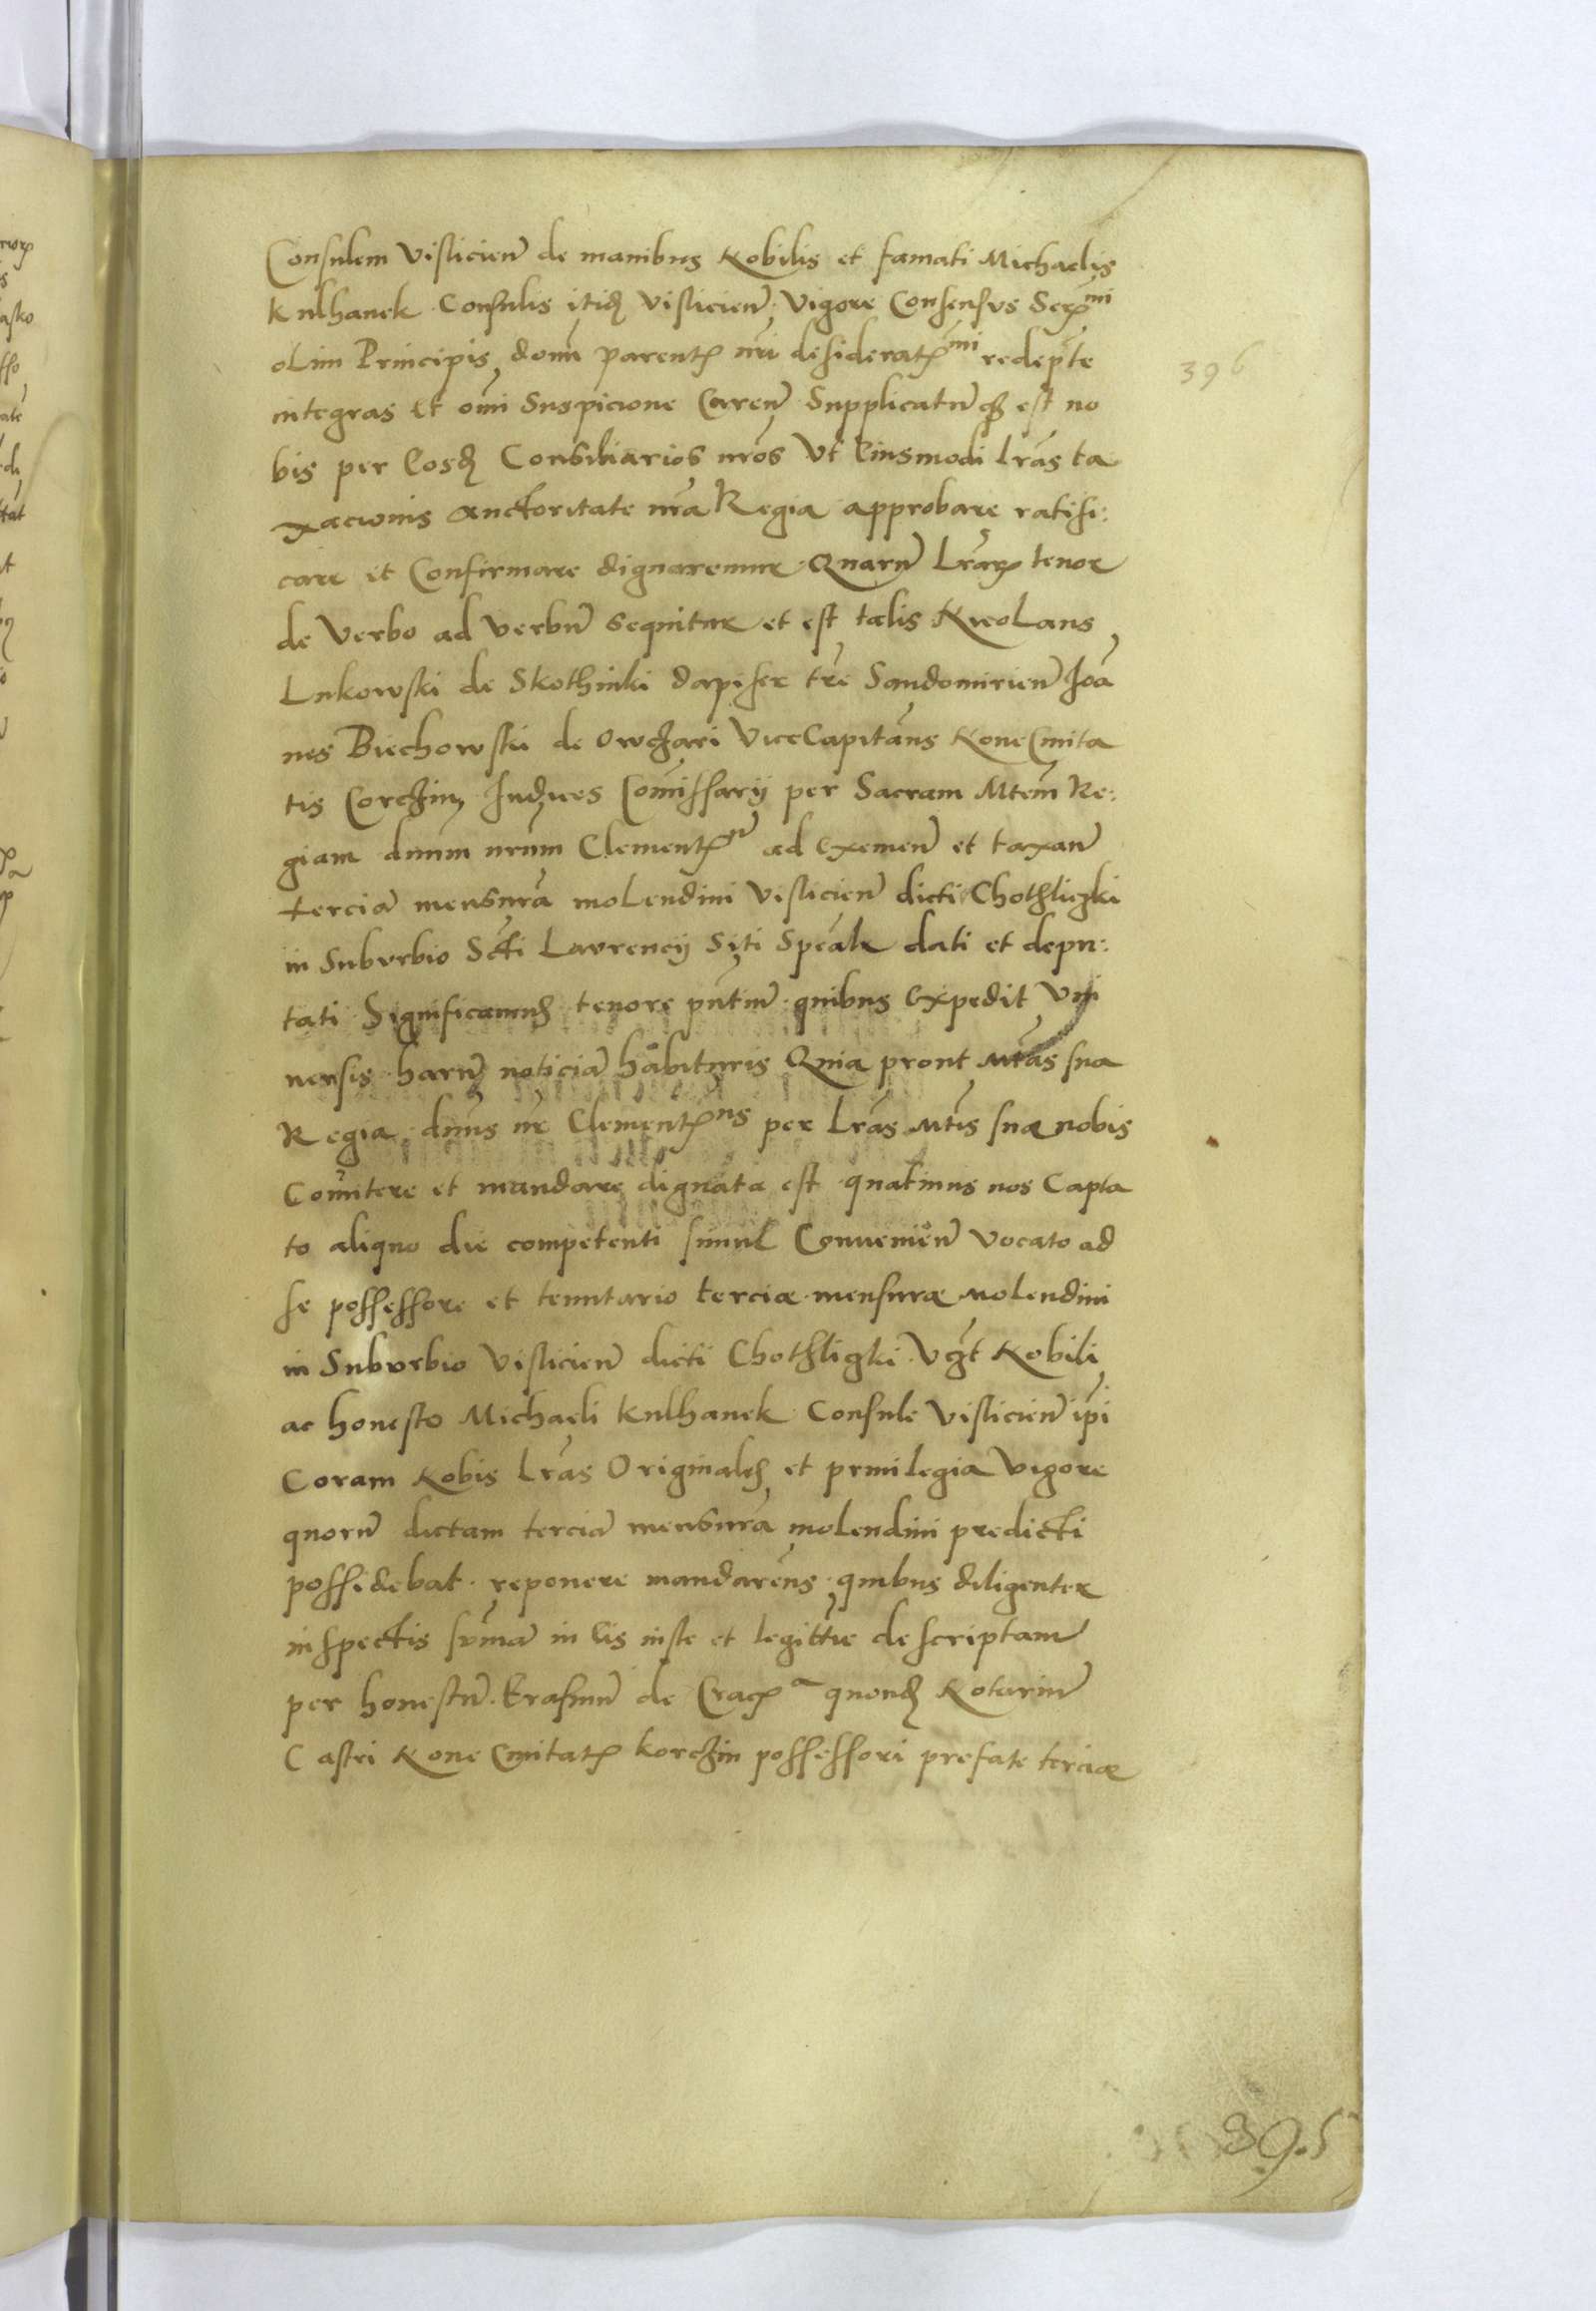 Consulem Visliciens̃ de manibus Nobilis et famati Michaelis
Kulhanek Consulis itidẽ Visliciens̃. Vigore Consensus Serʳᵐⁱ
olim Principis, domĩ parentꝭ nr̃i desideratꝭᵐⁱ redepte
integras et om̃i Suspicione Caren̄ Supplicatum̃qꝫ est no
bis per Eosdẽ Consiliarios nr̃os Vt Eiusmodi Lrãs ta
xacionis auctoritate nr̃a Regia approbare ratifi:
care et Confirmare dignaremur. Quarũ Lrãrꝝ tenor
de Verbo ad Verbũ sequitur et est talis Nicolaus
Lukowski de Skothniki dapifer tr̃e Sandomirien̄ Joã
nes Biechowski de Owczari ViceCapitãns Noue Cĩuita
tis Corczin, Judices Com̃issarij per Sacram Mtẽm Re:
giam dnũm nrũm Clementꝭᵐ ad Exemen̄ et taxan̄
terciã mensurã molendini Vislicien̄ dicti Chothliczki
in Suburbio Sc̃ti Laurencij Siti Speãlr dati et depu:
tati. Significamus tenore pñtiũ quibus Expedit Vni
uersis harũ noticiã habituris Quia prout Mtãs sua
Regia dñus nr̃ Clementꝭᵘˢ per Lrãs Mtĩs suæ nobis
Com̃itere et mandare dignata est quatinus nos Capta
to aliquo die competenti simul Conuenien̄ Vocato ad
se possessore et tenutario terciæ mensuræ Molendini
in Suburbio Vislicien̄ dicti Chothliczki Vcz̃t Nobili
ac honesto Michaeli Kulhanek Consule Vislicien̄ ip̃i
Coram Nobis Lrãs Originales et priuilegia Vigore
quorũ dictam terciã mensurã molendini predicti
possidebat reponere mandarem̃us quibus diligenter
inspectis sum̃ã in Eis iuste et legittime descriptam
per honestũ Erasmũ de Cracꝭᵃ quondã Notariũ
Castri Noue Cĩuitatꝭ Korczin possessori prefate terciæ
396
395